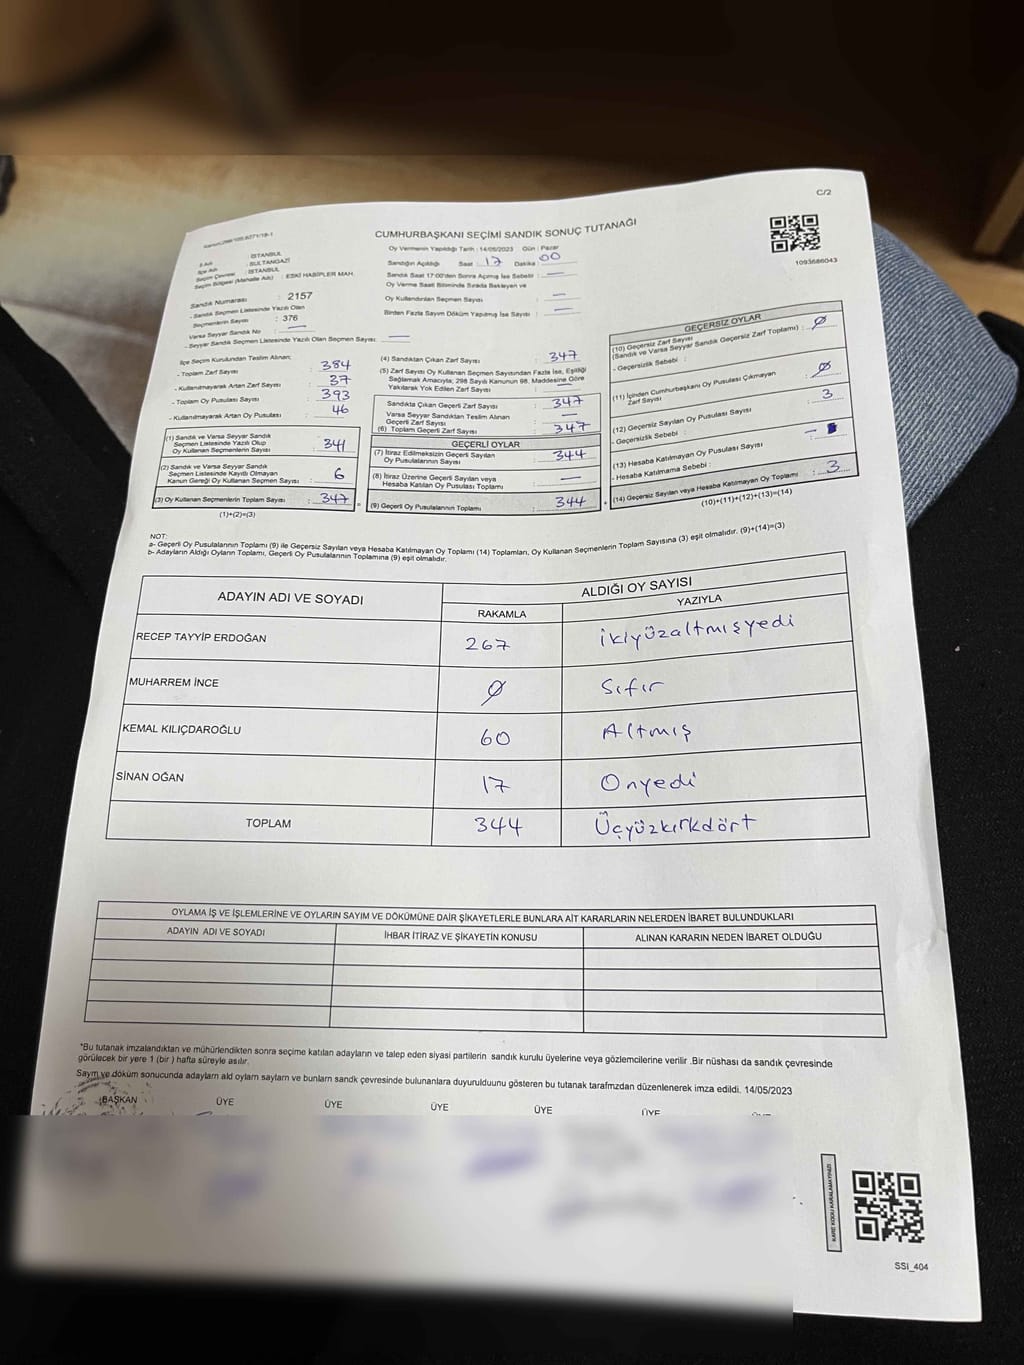 C/2
Kanun:298/105,6271/18-1
CUMHURBAŞKANI SEÇİMİ SANDIK SONUÇ TUTANAĞI
1093686043
İl Adı : İSTANBUL
İlçe Adı : SULTANGAZİ
Seçim Çevresi : İSTANBUL
Seçim Bölgesi (Mahalle Adı) : ESKİ HABİPLER MAH.
Sandık Numarası : 2157
- Sandık Seçmen Listesinde Yazılı Olan
Seçmenlerin Sayısı : 376
Varsa Seyyar Sandık No : —
- Seyyar Sandık Seçmen Listesinde Yazılı Olan Seçmen Sayısı: —
Oy Vermenin Yapıldığı Tarih : 14/05/2023 Gün : Pazar
Sandığın Açıldığı Saat : 17 Dakika : 00
Sandık Saat 17:00'den Sonra Açılmış İse Sebebi : —
Oy Verme Saati Bitiminde Sırada Bekleyen ve
Oy Kullandırılan Seçmen Sayısı : —
Birden Fazla Sayım Döküm Yapılmış İse Sayısı : —
İlçe Seçim Kurulundan Teslim Alınan;
- Toplam Zarf Sayısı : 384
- Kullanılmayarak Artan Zarf Sayısı : 37
- Toplam Oy Pusulası Sayısı : 393
- Kullanılmayarak Artan Oy Pusulası : 46
(1) Sandık ve Varsa Seyyar Sandık
Seçmen Listesinde Yazılı Olup
Oy Kullanan Seçmenlerin Sayısı : 341
(2) Sandık ve Varsa Seyyar Sandık
Seçmen Listesinde Kayıtlı Olmayan
Kanun Gereği Oy Kullanan Seçmen Sayısı : 6
(3) Oy Kullanan Seçmenlerin Toplam Sayısı : 347
(1)+(2)=(3)
(4) Sandıktan Çıkan Zarf Sayısı : 347
(5) Zarf Sayısı Oy Kullanan Seçmen Sayısından Fazla İse, Eşitliği
Sağlamak Amacıyla; 298 Sayılı Kanunun 98. Maddesine Göre
Yakılarak Yok Edilen Zarf Sayısı : —
Sandıkta Çıkan Geçerli Zarf Sayısı : 347
Varsa Seyyar Sandıktan Teslim Alınan
Geçerli Zarf Sayısı : —
(6) Toplam Geçerli Zarf Sayısı : 347
GEÇERLİ OYLAR
(7) İtiraz Edilmeksizin Geçerli Sayılan
Oy Pusulalarının Sayısı : 344
(8) İtiraz Üzerine Geçerli Sayılan veya
Hesaba Katılan Oy Pusulası Toplamı : —
(9) Geçerli Oy Pusulalarının Toplamı : 344
GEÇERSİZ OYLAR
(10) Geçersiz Zarf Sayısı
(Sandık ve Varsa Seyyar Sandık Geçersiz Zarf Toplamı) : Ø
- Geçersizlik Sebebi :
(11) İçinden Cumhurbaşkanı Oy Pusulası Çıkmayan
Zarf Sayısı : Ø
(12) Geçersiz Sayılan Oy Pusulası Sayısı : 3
- Geçersizlik Sebebi :
(13) Hesaba Katılmayan Oy Pusulası Sayısı : —
- Hesaba Katılmama Sebebi :
(14) Geçersiz Sayılan veya Hesaba Katılmayan Oy Toplamı : 3
(10)+(11)+(12)+(13)=(14)
NOT:
a- Geçerli Oy Pusulalarının Toplamı (9) ile Geçersiz Sayılan veya Hesaba Katılmayan Oy Toplamı (14) Toplamları, Oy Kullanan Seçmenlerin Toplam Sayısına (3) eşit olmalıdır. (9)+(14)=(3)
b- Adayların Aldığı Oyların Toplamı, Geçerli Oy Pusulalarının Toplamına (9) eşit olmalıdır.
ADAYIN ADI VE SOYADI ALDIĞI OY SAYISI
RAKAMLA YAZIYLA
RECEP TAYYİP ERDOĞAN 267 ikiyüzaltmışyedi
MUHARREM İNCE Ø Sıfır
KEMAL KILIÇDAROĞLU 60 Altmış
SİNAN OĞAN 17 Onyedi
TOPLAM 344 Üçyüzkırkdört
OYLAMA İŞ VE İŞLEMLERİNE VE OYLARIN SAYIM VE DÖKÜMÜNE DAİR ŞİKAYETLERLE BUNLARA AİT KARARLARIN NELERDEN İBARET BULUNDUKLARI
ADAYIN ADI VE SOYADI İHBAR İTİRAZ VE ŞİKAYETİN KONUSU ALINAN KARARIN NEDEN İBARET OLDUĞU
*Bu tutanak imzalandıktan ve mühürlendikten sonra seçime katılan adayların ve talep eden siyasi partilerin sandık kurulu üyelerine veya gözlemcilerine verilir .Bir nüshası da sandık çevresinde
görülecek bir yere 1 (bir ) hafta süreyle asılır.
Sayım ve döküm sonucunda adayların ald oyların sayların ve bunların sandk çevresinde bulunanlara duyurulduunu gösteren bu tutanak tarafmzdan düzenlenerek imza edildi. 14/05/2023
BAŞKAN ÜYE ÜYE ÜYE ÜYE ÜYE ÜYE
KARE KODU KARALAMAYINIZ!
SSİ_404